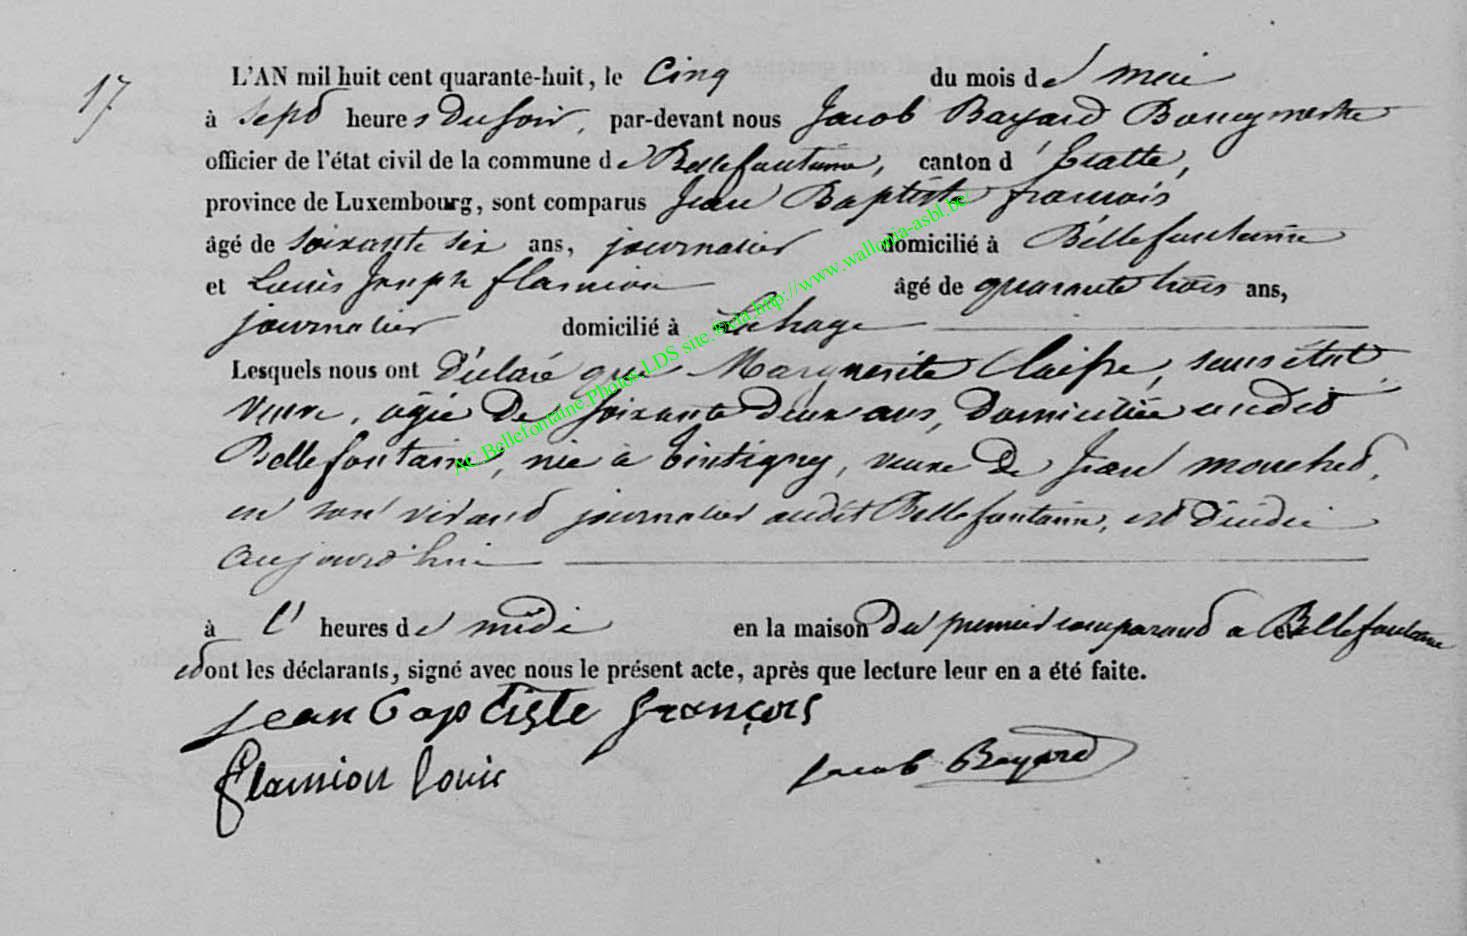 17
L'AN mil huit cent quarante-huit, le Cinq du mois de mai
à sept heures du soir, par-devant nous Jacob Bayard Bourgmestre
officier de l'état civil de la commune de Bellefontaine, canton d'Etalle,
province de Luxembourg, sont comparus Jean Baptiste françois
âgé de soixante six ans, journalier domicilié à Bellefontaine
et Louis Joseph flamion âgé de quarante trois ans,
journalier domicilié à Lahage
Lesquels nous ont déclaré que Marguerite Claisse, sans état
veuve, agée de soixante deux ans, domiciliée audit
Bellefontaine, née à tintigny, veuve de Jean mouchet,
en son vivant journalier audit Bellefontaine, est décédée
aujourd'hui
à l' heures de midi en la maison du premier comparant à Bellefontaine
et dont les déclarants, signé avec nous le présent acte, après que lecture leur en a été faite.
jean baptiste françois
flamion louis Jacob Bayard
AC Bellefontaine Photos LDS site: http://www.wallonia-asbl.be/